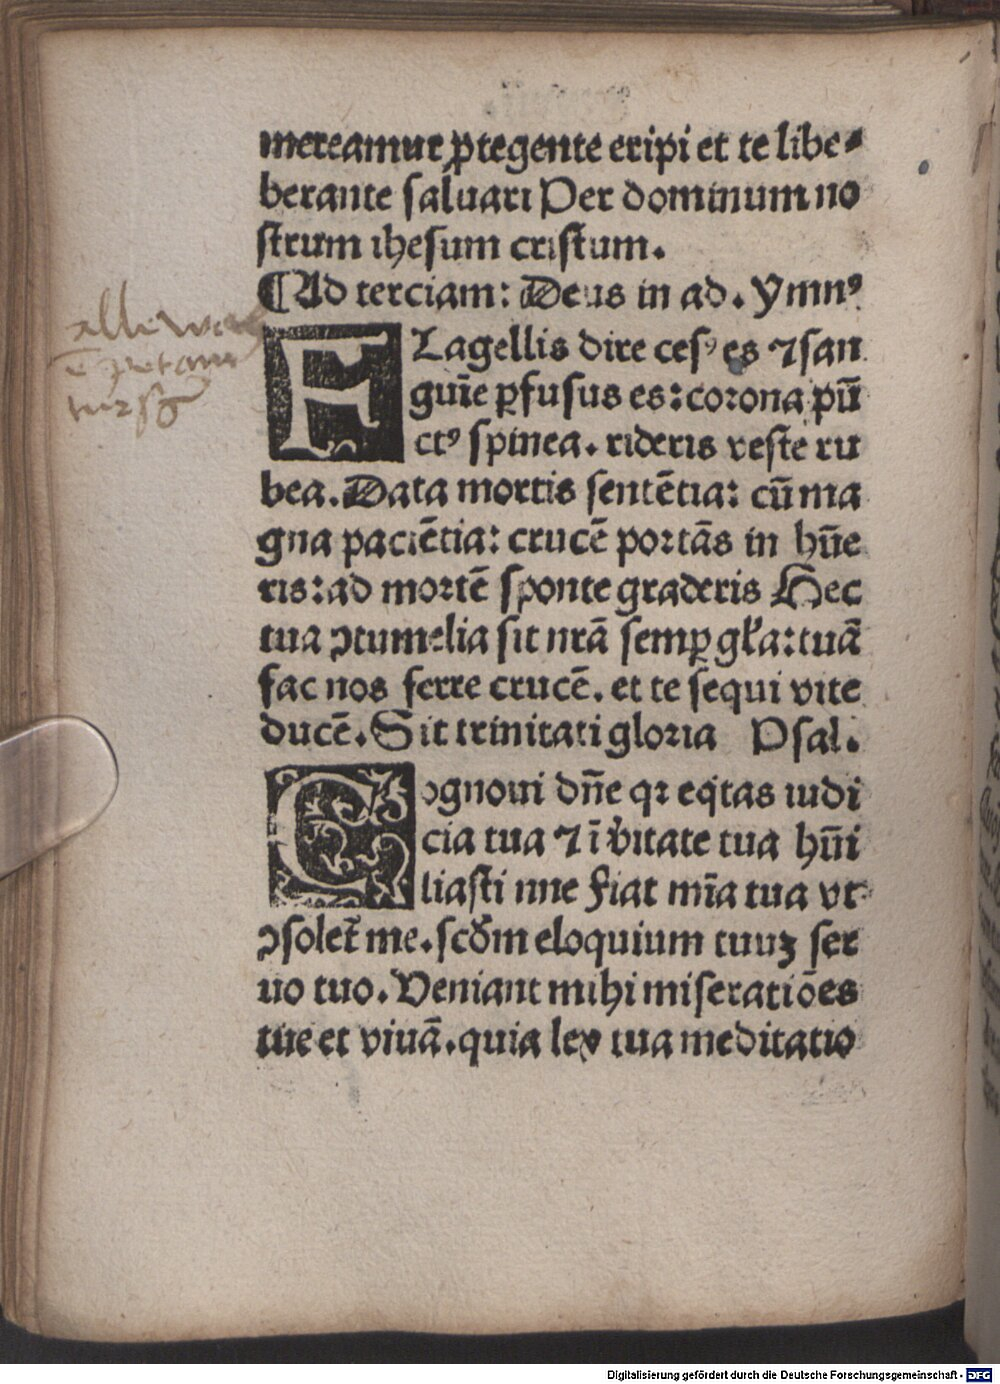 mereamur ꝓtegente eripi et te libe⸗
berante saluari Per dominum no
strum ihesum cristum.
¶Ad terciam: Deus in ad. Ymnꝰ
FLagellis dire cesꝰ es ⁊ san
guīe ꝑfusus es: corona pū
ctꝰ spinea. rideris veste ru
bea. Data mortis sentētia: cū ma
gna paciētia: crucē portās in hūe
ris: ad mortē sponte graderis Hec
tua ↄtumelia sit nrā semꝑ gła: tuā
fac nos ferre crucē. et te sequi vite
ducē. Sit trinitati gloria Psal.
Cognoui dñe qꝛ eq̇tas iudi
cia tua ⁊ ī v̓itate tua hūi
liasti me Fiat mīa tua vt
ↄsolet̄ me. scd̓m eloquium tuuꝫ ser
uo tuo. Veniant mihi miseratiōes
tue et viuā. quia lex tua meditatio
Digitalisierung gefördert durch die Deutsche Forschungsgemeinschaft - DFG